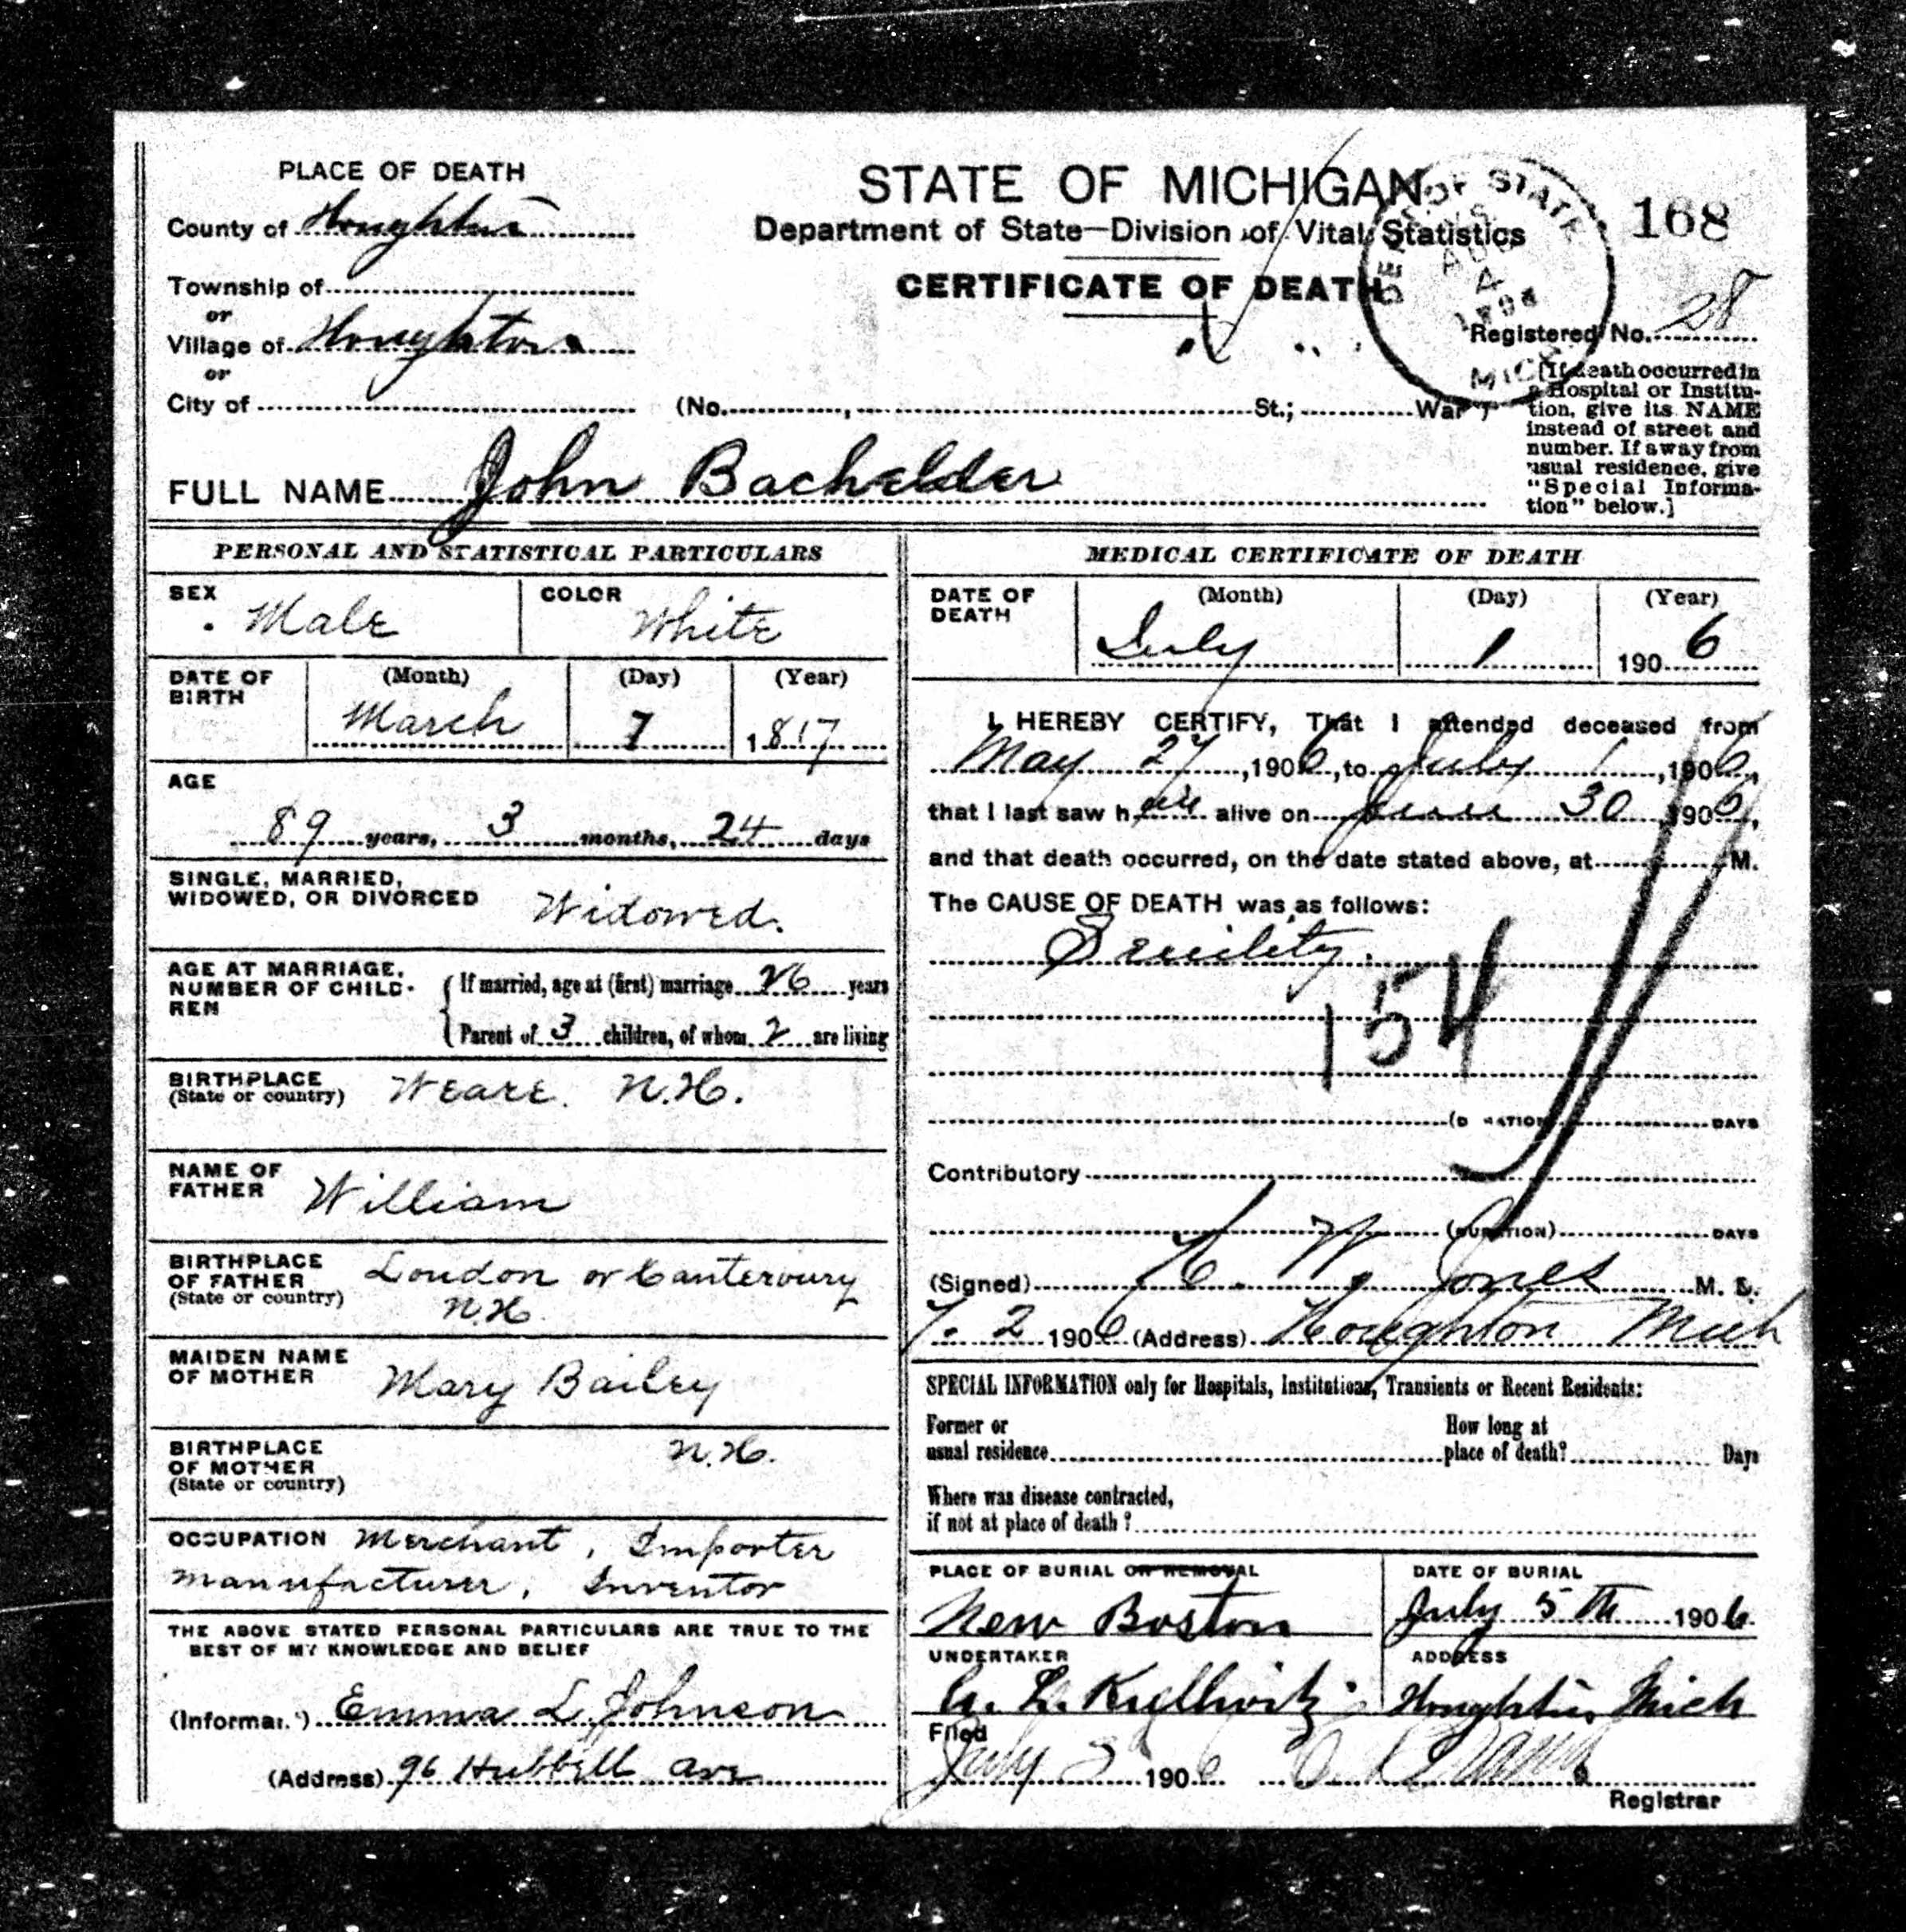 PLACE OF DEATH
County of Houghton
Township of
or
Village of Houghton
or
City of
STATE OF MICHIGAN
Department of State—Division of Vital Statistics
CERTIFICATE OF DEATH
DEPT. OF STATE
AUG
4
MICH.
168
Registered No. 28
(No. , St.; Ward)
[If death occurred in
a Hospital or Institu-
tion, give its NAME
instead of street and
number. If away from
usual residence, give
"Special Informa-
tion" below.]
FULL NAME John Bachelder
PERSONAL AND STATISTICAL PARTICULARS
SEX Male
COLOR White
DATE OF BIRTH
(Month) (Day) (Year)
March 7 1817
AGE
89 years, 3 months, 24 days
SINGLE, MARRIED,
WIDOWED, OR DIVORCED Widowed.
AGE AT MARRIAGE,
NUMBER OF CHILD-
REN
If married, age at (first) marriage 26 years
Parent of 3 children, of whom 2 are living
BIRTHPLACE
(State or country) Weare. N.H.
NAME OF
FATHER William
BIRTHPLACE
OF FATHER
(State or country)
Loudon or Canterbury
N.H.
MAIDEN NAME
OF MOTHER Mary Bailey
BIRTHPLACE
OF MOTHER
(State or country)
N.H.
OCCUPATION Merchant, Importer
Manufacturer, Inventor
THE ABOVE STATED PERSONAL PARTICULARS ARE TRUE TO THE
BEST OF MY KNOWLEDGE AND BELIEF
(Informant) Emma L. Johnson
(Address) 96 Hubbell ave
MEDICAL CERTIFICATE OF DEATH
DATE OF
DEATH
(Month) (Day) (Year)
July 1 1906
I HEREBY CERTIFY, That I attended deceased from
May 27, 1906, to July 1, 1906,
that I last saw him alive on June 30 1906,
and that death occurred, on the date stated above, at M.
The CAUSE OF DEATH was as follows:
Senility.
154
(DURATION) DAYS
Contributory
(DURATION) DAYS
(Signed) W. Jones M. D.
7. 2 1906 (Address) Houghton Mich
SPECIAL INFORMATION only for Hospitals, Institutions, Transients or Recent Residents:
Former or
usual residence
How long at
place of death? Days
Where was disease contracted,
if not at place of death?
PLACE OF BURIAL OR REMOVAL
New Boston
DATE OF BURIAL
July 5th 1906.
UNDERTAKER
ADDRESS
Houghton, Mich
Filed
July 3 1906
Registrar